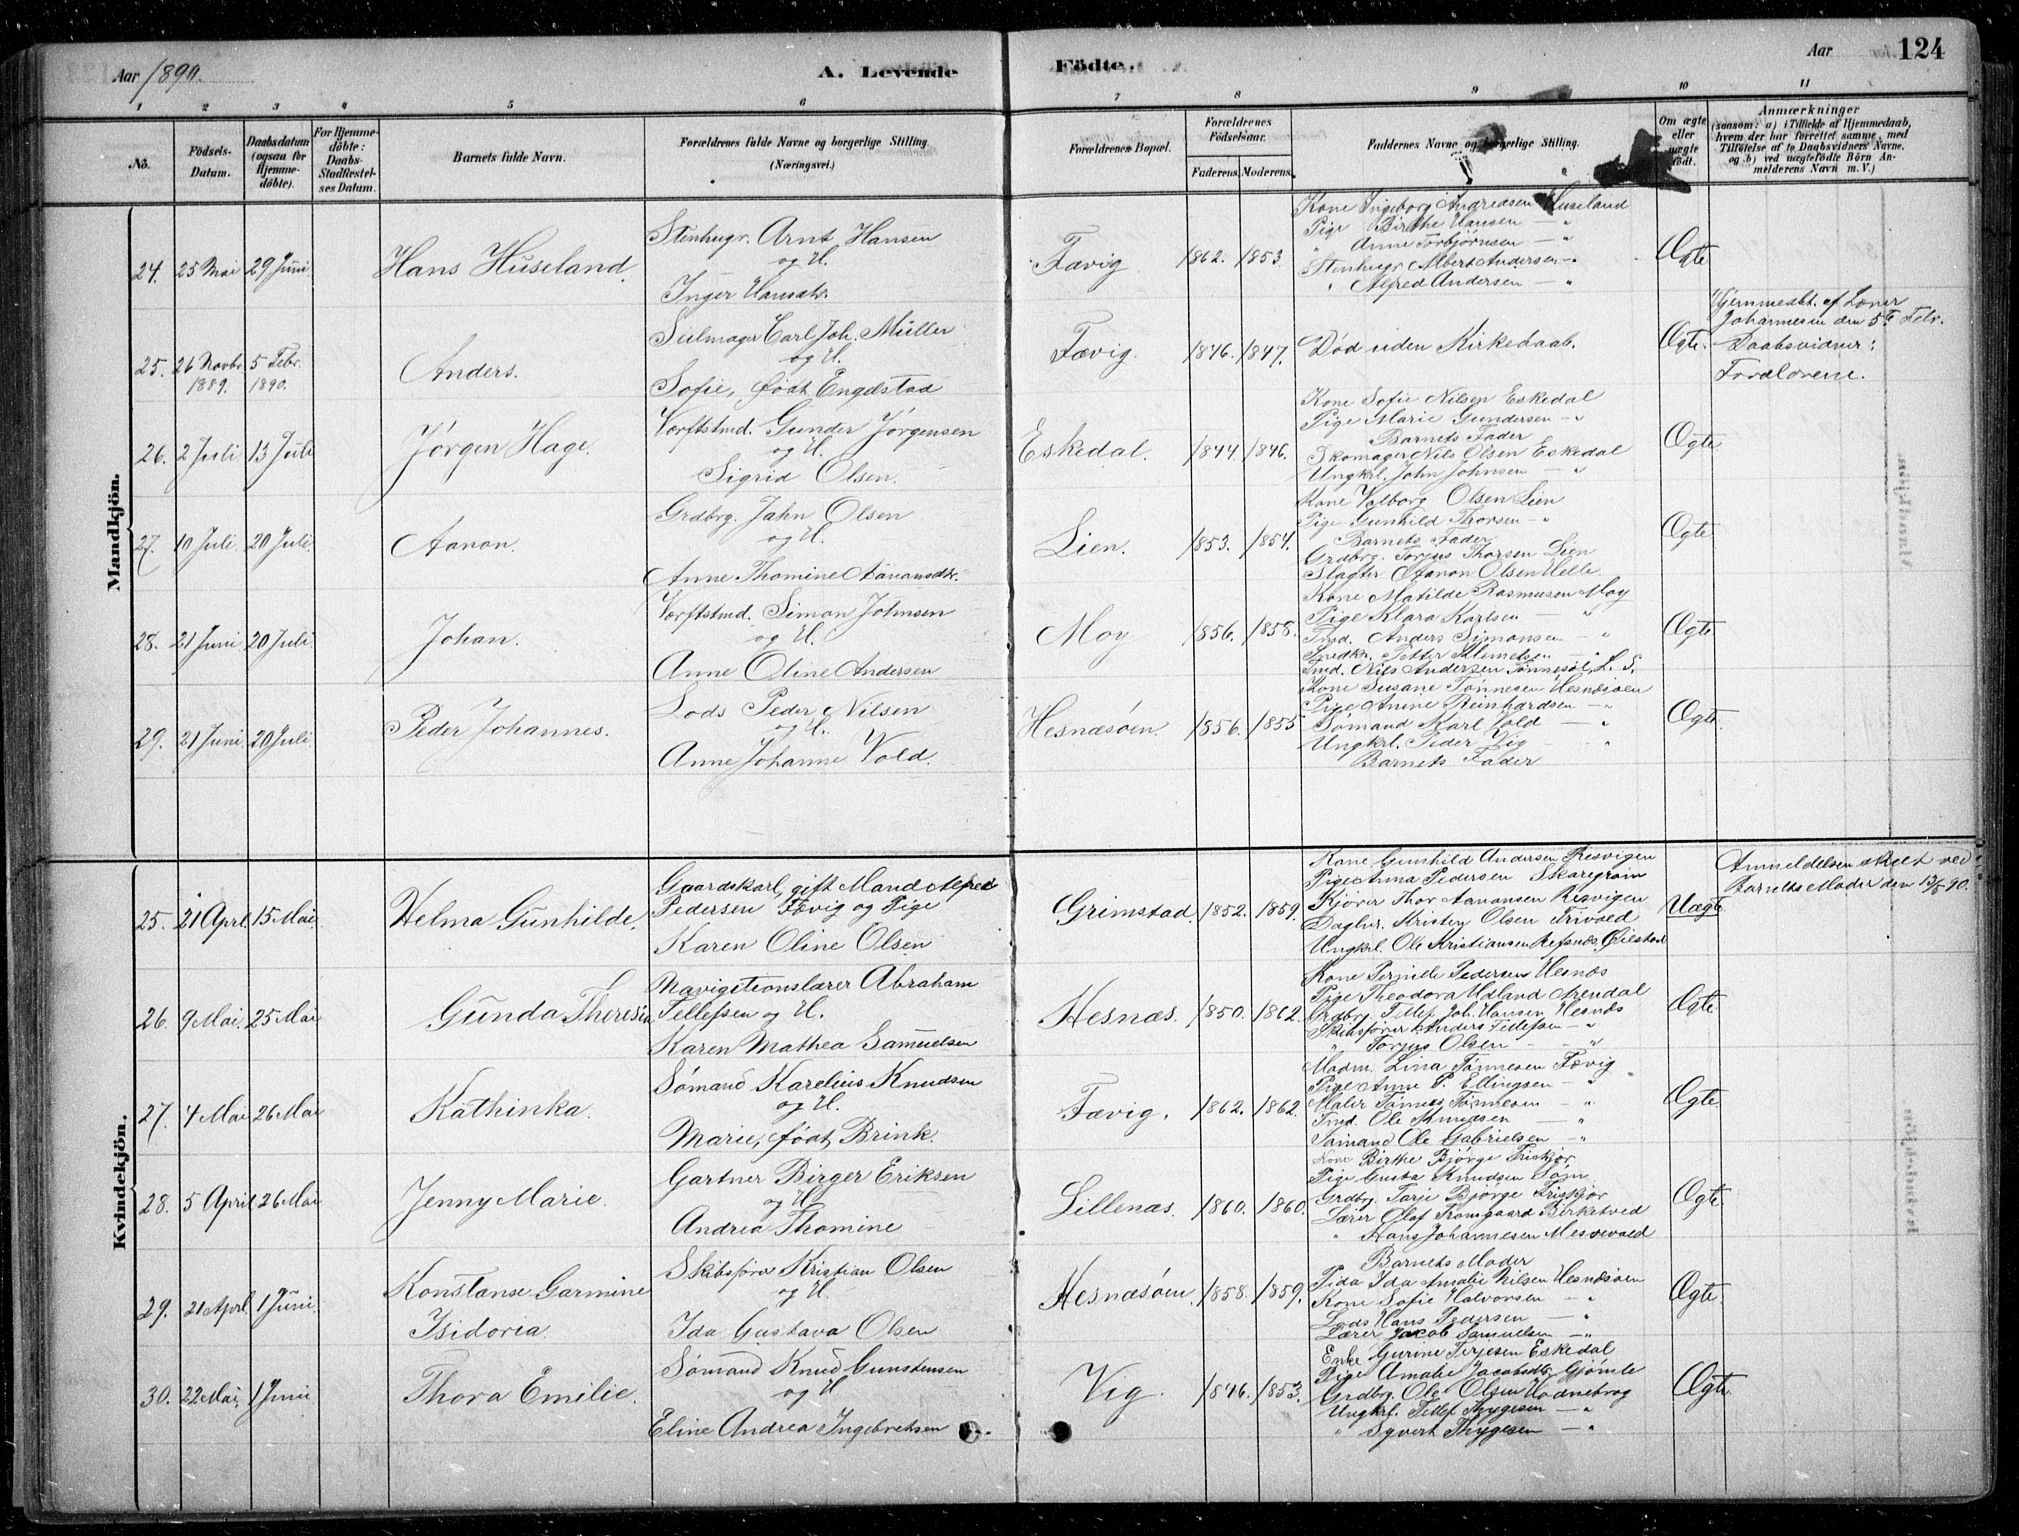 Aar 1890.
A. Levende
Födte.
Aar
124
1 2 3 4 5 6 7 8 9 10 11
No.
Födsels-
Datum.
Daabsdatum
(ogsaa for
Hjemme-
döbte).
For Hjemme-
döbte:
Daabs-
Stadfæstel-
ses Datum.
Barnets fulde Navn.
Forældrenes fulde Navne og borgerlige Stilling.
(Næringsvei.)
Forældrenes Bopæl.
Forældrenes
Födselsaar.
Faderens. Moderens.
Faddernes Navne og borgerlige Stilling.
Om ægte
eller
uægte
født.
Anmærkninger
(saasom: a) i Tilfælde af Hjemmedaab,
hvem der har forrettet samme, med
Tilföielse af to Daabsvidners Navne,
og b) ved uægtefødte Börn An-
melderens Navn m. V.)
Mandkjön.
24. 25 Mai 29 Juni
Hans Huseland.
Stenhugr. Arnt Hansen
og H.
Inger Hansdtr.
Fævig
1862. 1853.
Kone Ingeborg Andreasen Huseland
Pige Birthe Hansen — "
" Anne Torbjørnsen — "
Stenhugr. Albert Andersen — "
" Alfred Andersen — "
Ægte
25. 26 Novbr. 5 Febr.
1889. 1890.
Anders.
Seilmager Carl Joh. Müller
og H.
Sofie, født Engelstad
Fævig.
1846. 1847.
Død uden Kirkedaab.
Ægte.
Hjemmedbt. af Lærer
Johannesen den 5te Febr.
Daabsvidner:
Forældrene.
26. 2 Juli. 13 Juli
Jørgen Hage.
Værftstmd. Gunder Jørgensen
og H.
Sigrid Olsen.
Eskedal.
1844. 1846.
Kone Sofie Nilsen Eskedal
Pige Marie Gundersen — "
Barnets Fader
Skomager Nils Olsen Eskedal
Ungkrl. John Johnsen — "
Ægte
27. 10 Juli. 20 Juli.
Aanon.
Grdbrg. Jahn Olsen
og H.
Anne Thomine Aanonsdtr.
Lien.
1853. 1854.
Kone Valborg Olsen Lien
Pige Gunhild Thorsen — "
Barnets Fader
Grdbrg. Torjus Thorsen Lien
Slagter Aanon Olsen Helle
Ægte
28. 21 Juni 20 Juli
Johan.
Værftstmd. Simon Johnsen
og H.
Anne Oline Andersen
Moy
1856. 1858.
Kone Matilde Rasmussen Moy
Pige Klara Karlsen "
Tmd. Anders Simonsen — "
Snedkr. Petter Klemetsen — "
Tmd. Nils Andersen Tønnesøl L. S.
Ægte
29. 21 Juni 20 Juli
Peder Johannes.
Lods Peder Nilsen
og H.
Anne Johanne Vold.
Hesnæsøen.
1856. 1855
Kone Susane Tønnesen Hesnæsøen
Pige Anine Reinhardsen — "
Sømand Karl Vold — "
Ungkrl. Peder Vig — "
Barnets Fader
Ægte
Kvindekjön.
25. 21 April 15 Mai.
Helma Gunhilde.
Gaardskarl, gift Mand Alfred
Pedersen Fævig og Pige
Karen Oline Olsen
Grimstad
1852. 1859.
Kone Gunhild Andersen Resvigen
Pige Anna Pedersen Skaregrøm
Kjører Thor Aanonsen Resvigen
Daglnr. Kristen Olsen Trivold
Ungkrl. Ole Kristiansen Refsnes,
Uægte
Anmeldelsen skeet ved
Barnets Moder den 13/5 90.
26. 9 Mai. 25 Mai
Gunda Theresia
Navigationslærer Abraham
Tellefsen og H.
Karen Mathea Samuelsen
Hesnæs.
1850. 1862.
Kone Pernille Pedersen Hesnæs
Pige Theodora Udland Arendal
Grdbrg. Tellef Joh. Hansen Hesnæs
Skibsfører Anders Tellefsen — "
" Torjus Olsen — "
Ægte
27. 4 Mai 26 Mai
Kathinka.
Sømand Karelius Knudsen
og H.
Marie, født Brink.
Fævig.
1862. 1862
Madm. Lina Tønnesen Fævig
Pige Anne P. Ellingsen — "
Maler Tønnes Tønnesen — "
Tmd. Ole Knudsen — "
Sømand Ole Gabrielsen — "
Ægte
28. 5 April 26 Mai
Jenny Marie.
Gartner Birger Eriksen
og H
Andrea Thomine
Lillenæs.
1860. 1860.
Kone Birthe Bjørge Friskjør
Pige Gusta Knudsen Søm
Grdbrg. Tarje Bjørge Friskjør
Lærer Olof Tromgaard Birketved
" Hans Johannesen Mesvevold
Ægte
29. 21 April 1 Juni.
Konstanse Garmine
Isidoria.
Skibsfører Kristian Olsen
og H.
Ida Gustava Olsen
Hesnæsøen.
1858. 1859.
Barnets Moder
Pida Ida Amalie Nilsen Hesnæsøen
Kone Sofie Halvorsen — "
Lods Hans Pedersen — "
Lærer Jakob Samuelsen — "
Ægte.
30. 22 Mai, 1 Juni
Thora Emilie.
Sømand Knud Gunstensen
og H
Eline Andrea Ingebretsen
Vig.
1846. 1853.
Enke Gurine Terjesen Eskedal
Pige Amalie Jacobsdtr. Gjømle
Grdbrg. Ole Olsen Hodnebrog
Ungkrl. Tellef Thygesen — "
" Syvert Thygesen — "
Ægte